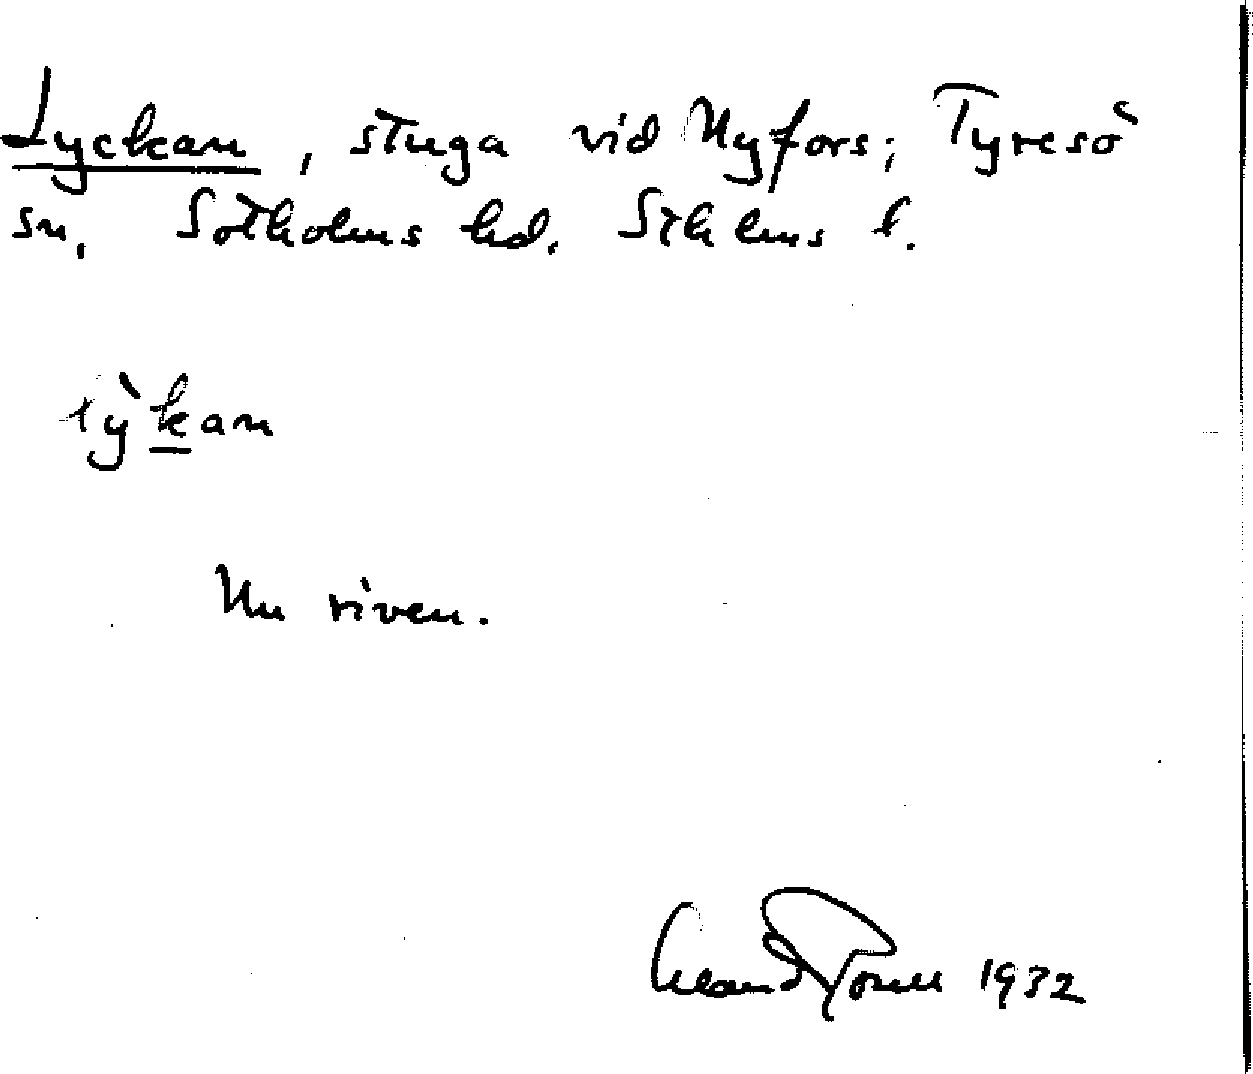 Lyckan, stuga vid Nyfors; Tyresö
sn, Sotholms hd. Sthlms l.
lỳkan
Nu riven.
1932